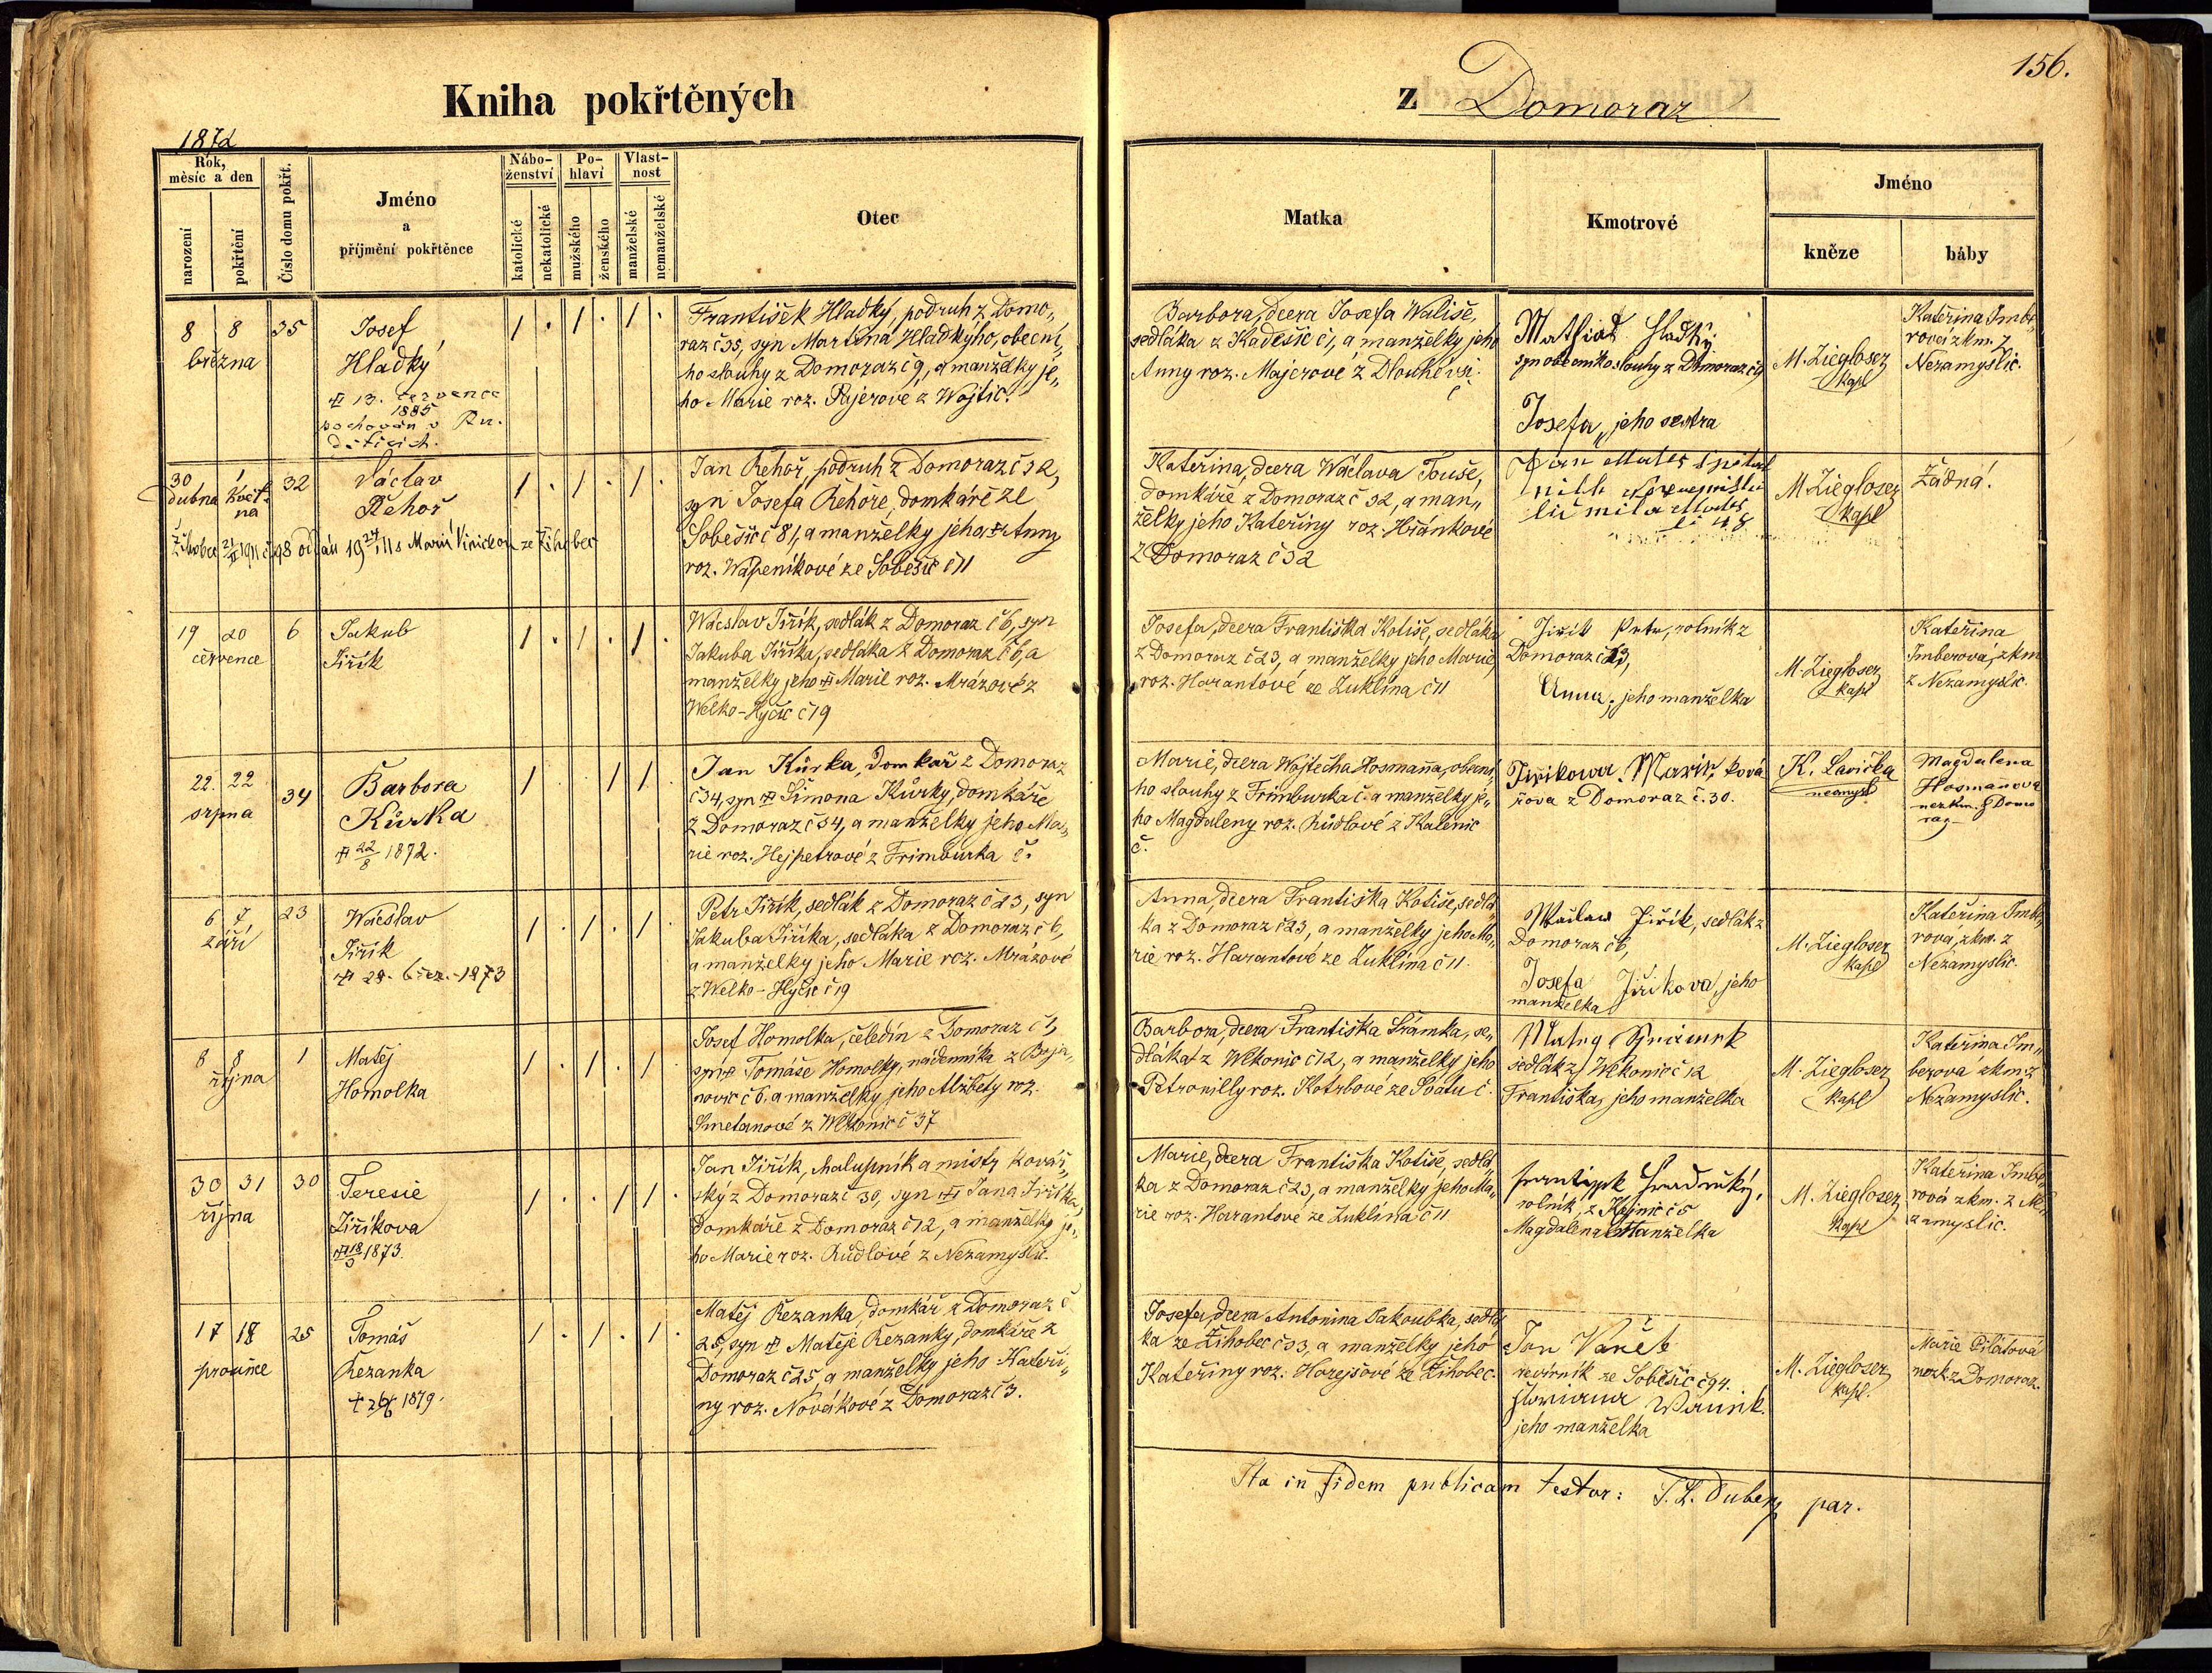 Kniha pokřtěných
z Domoraz
156.
1872
Rok, měsíc a den
narození
pokřtění
Číslo domu pokřt.
Jméno
a
příjmění pokřtěnce
Nábo-
ženství
katolické
nekatolické
Po-
hlaví
mužského
ženského
Vlast-
nost
manželské
nemanželské
Otec
Matka
Kmotrové
Jméno
kněze
báby
8 8 35
března
Josef
Hladký
13. července
1885
pochován v
František Hladký, podruh z Domo„
raz č 35, syn Martina Hladkýho, obecní„
ho slouhy z Domoraz č 9, a manželky je„
ho Marie roz. Rajerové z Wojtic.
Barbora, dcera Josefa Wališe,
sedláka z Kadešic č 1, a manželky jeho
Anny roz. Majerové z Dlouhévsi
č
Hladký
syn obecního slouhy z Domoraz č 9
Josefa, jeho sestra
M. Zieglosez
kapl
Kateřina Imbe„
rová zkm. z
Nezamyslic.
30 1 32
dubna květ-
na
Václav
Řehoř
Jan Řehoř, podruh z Domoraz č 32,
syn Josefa Řehoře, domkáře ze
Soběšic č 81, a manželky jeho Anny
roz. Wápeníkové ze Soběšic č 11
Kateřina, dcera Wáclava Touše,
domkáře z Domoraz č 32, a man„
želky jeho Kateřiny roz. Hřánkové
z Domoraz č 32
M Zieglosez
kapl
Žádná!
19 20 6
července
Jakub
Jiřík
Wácslav Jiřík, sedlák z Domoraz č 6, syn
Jakuba Jiříka, sedláka z Domoraz č 6, a
manželky jeho Marie roz. Mrázové z
Welko-Hyčic č 19
Josefa, dcera Františka Kotiše, sedláka
z Domoraz č 23, a manželky jeho Marie,
roz. Harantové ze Zuklína č 11
Jiřík Petr, rolník z
Domoraz č 23,
Anna, jeho manželka
M. Zieglosez
kapl
Kateřina
Imberová, zkm
z Nezamyslic.
22. 22 34
srpna
Barbora
Kůrka
22/8 1872.
Jan Kůrka, domkař z Domoraz
č 34, syn Šimona Kůrky, domkáře
z Domoraz č 34, a manželky jeho Ma„
rie roz. Hejpetrové z Frimburka č.
Marie, dcera Wojtěcha Hosmaňa, obecní„
ho slouhy z Frimburka č. a manželky je„
ho Magdaleny roz. Růdlové z Kalenic
č.
Jiříkowa
z Domoraz č. 30.
K. Lavička
Magdalena
Hosmaňova
nezkm. z Domo
raz
6 7 23
září
Wácslav
Jiřík
28. břez. 1873
Petr Jiřík, sedlák z Domoraz č 23, syn
Jakuba Jiříka, sedláka z Domoraz č 6,
a manželky jeho Marie roz. Mrázové
z Welko-Hyčic č 19
Anna, dcera Františka Kotiše, sedlá„
ka z Domoraz č 23, a manželky jeho Ma„
rie roz. Harantové ze Zuklína č 11.
Wáclaw Jiřík, sedlák z
Domoraz č 6,
Josefa Jiříkova, jeho
manželka
M. Zieglosez
kapl
Kateřina Imbe„
rová, zkm. z
Nezamyslic.
8 8 1
října
Matěj
Homolka
Josef Homolka, čeledín z Domoraz č 1,
syn Tomáše Homolky, nádenníka z Boja„
novic č 6. a manželky jeho Alžběty roz.
Smetanové z Wlkonic č 37
Barbora, dcera Františka Šrámka, se„
dláka z Wlkonic č 12, a manželky jeho
Petronilly roz. Kotrbové ze Svatu č.
sedlák z Wlkonic č 12
Františka, jeho manželka
M. Zieglosez
kapl
Kateřina Im„
berová zkm. z
Nezamyslic.
30 31 30
října
Teresie
Jiříkova
1873.
Jan Jiřík, chalupník a mistr kovář„
ský z Domoraz č 30, syn Jana Jiříka,
domkáře z Domoraz č 12, a manželky je„
ho Marie roz. Růdlové z Nezamyslic.
Marie, dcera Františka Kotiše, sedlá„
ka z Domoraz č 23, a manželky jeho Ma„
rie roz. Harantové ze Zuklína č 11
rolník, z Kejnic č 5
Magdalena manželka
M. Zieglosez
kapl
Kateřina Imbe„
rová zkm. z Ne„
zamyslic.
17 18 25
prosince
Tomáš
Řezanka
1879.
Matěj Řezanka, domkář z Domoraz č
25, syn Matěje Řezanky, domkáře z
Domoraz č 25, a manželky jeho Kateři„
ny roz. Novákové z Domoraz č 3.
Josefa, dcera Antonína Jakoubka, sedlá„
ka ze Žihobec č 33, a manželky jeho
Kateřiny roz. Horejšové ze Žihobec.
Jan
ze Soběšic č 94.
jeho manželka
M. Zieglosez
kapl.
Marie Pilátová
nezk. z Domoraz.
Ita in fidem publicam testor: par.